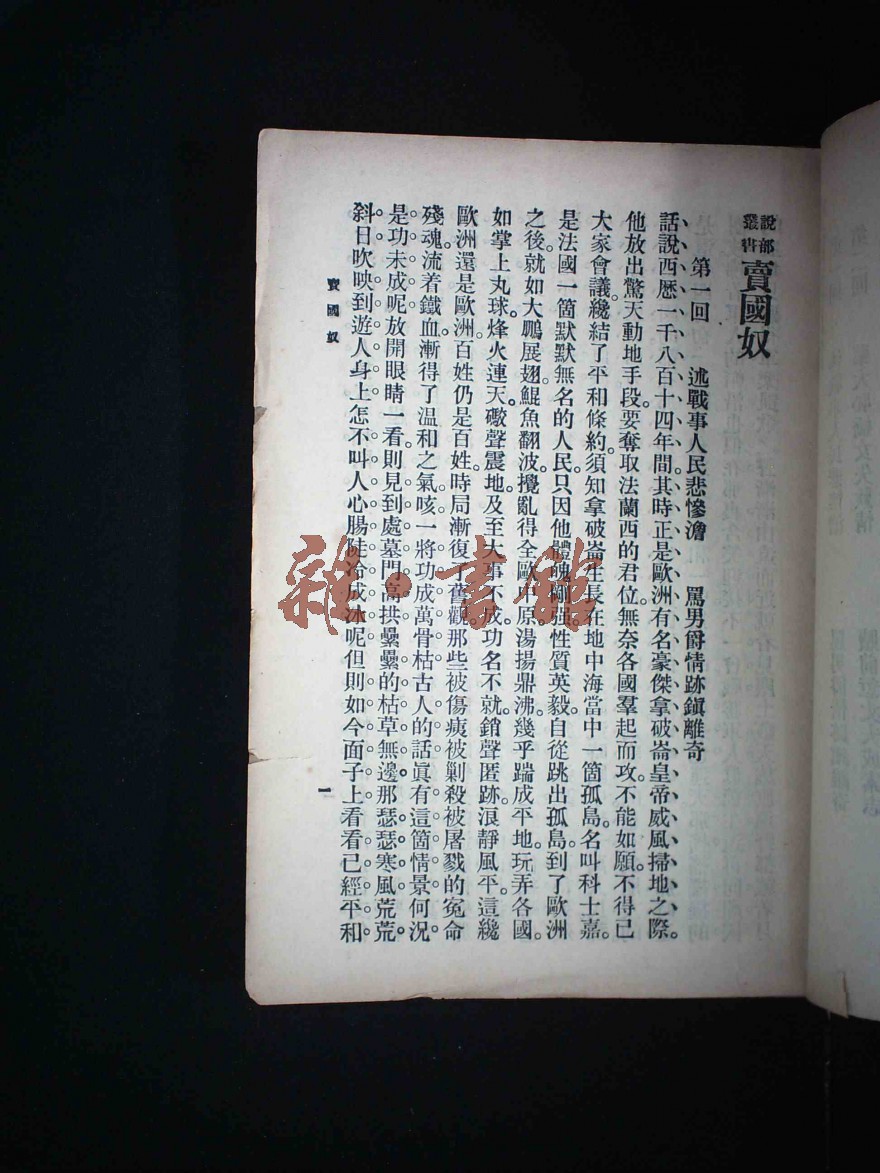 說部叢書 賣國奴
第一回 述戰事人民悲慘澹 罵男爵情跡鎭離奇
話說西歷一千八百十四年間其時正是歐洲有名豪傑拿破崙皇帝威風掃地之際。
他放出驚天動地手段要奪取法蘭西的君位。無奈各國羣起而攻。不能如願。不得已
大家會議。纔結了平和條約。須知拿破崙生長在地中海當中一箇孤島。名叫科士嘉。
是法國一箇默默無名的人民。只因他體魄剛强。性質英毅。自從跳出孤島。到了歐洲
之後。就如大鵬展翅。鯤魚翻波。攪亂得全歐中原。湯揚鼎沸。幾乎踹成平地。玩弄各國。
如掌上丸球。烽火連天。礮聲震地。及至大事不成。功名不就。銷聲匿跡。浪靜風平。這纔
歐洲還是歐洲。百姓仍是百姓。時局漸復了舊觀。那些被傷痍被剿殺被屠戮的冤命
殘魂。流着鐵血。漸得了温和之氣。咳。一將功成萬骨枯。古人的話。眞有這箇情景。何況
是功未成呢。放開眼睛一看。則見到處墓門高拱。纍纍的枯草無邊。那瑟瑟寒風。荒荒
斜日。吹映到遊人身上。怎不叫人心腸陡冷成冰呢。但則如今面子上看看已經平和
賣國奴
一
雜·書館